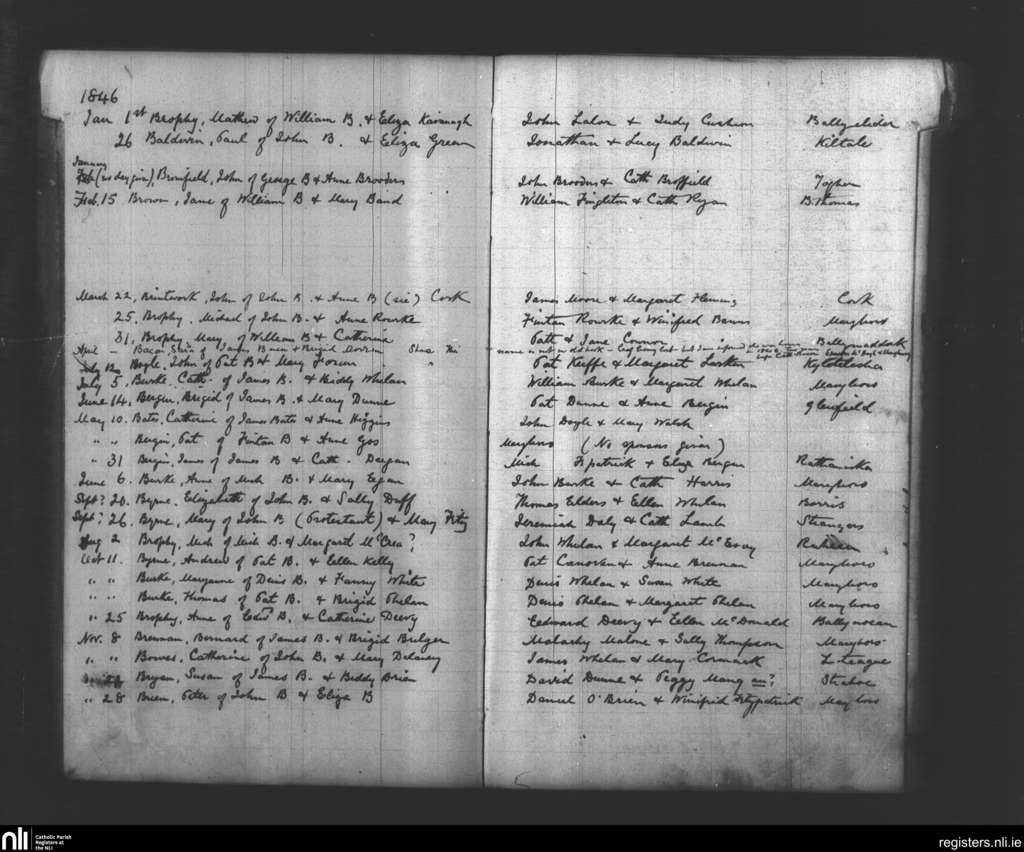 1846
Jan 1st Brophy, Mathew of William B. & Eliza Kavanagh John Lalor & Judy Cushion Ballyclider
26 Baldwin, Paul of John B. & Eliza Green Jonathan & Lucy Baldwin Kiltale
January
Feb (no day given), Bromfield, John of George B & Anne Brooders John Brooders & Cath Broffield Togher
Feb. 15 Brown, Jane of William B & Mary Band William Fingleton & Cath Ryan B. Thomas
March 22, Brintwork, John of John B. & Anne B (sic) Cork James Moore & Margaret Fleming Cork
25, Brophy, Michael of John B. & Anne Rourke Fintan Rourke & Winifred Banns Maryboro
31, Brophy Mary, of William B & Catherine Patt & Jane Connor Ballymaddock
April — Bacon, of James Bacon & Brigid name is not in old book
July Boyle, John of Pat B & Mary Horan " Pat Keeffe & Margaret Larkin Kyletelesha
July 5, Burke, Cath. of James B. & Biddy Whelan William Burke & Margaret Whelan Maryboro
June 14, Bergin, Brigid of James B. & Mary Dunne Pat Dunne & Anne Bergin Glenfield
May 10. Bates, Catherine of James Bates & Anne Higgins John Doyle & Mary Walsh
" " Bergin, Pat of Fintan B & Anne Gos Maryboro (No sponsors given)
" 31 Bergin, James of James B & Cath. Deegan Mich Fpatrick & Eliza Bergin Rathaniska
June 6. Burke, Anne of Mich B. & Mary Egan John Burke & Cath Harris Maryboro
Sept? 20. Byrne, Elizabeth of John B. & Sally Duff Thomas Elders & Ellen Whelan Borris
Sept? 26. Byrne, Mary of John B (Protestant) & Mary Fitz Jeremiah Daly & Cath Lamb Strangers
Aug 2 Brophy, Mich of Mich B. & Margaret McCrea? John Whelan & Margaret McEvoy Raheen
Oct 11. Byrne, Andrew of Pat B. & Ellen Kelly Pat Canovan & Anne Brennan Maryboro
" " Burke, Maryanne of Denis B. & Fanny White Denis Whelan & Susan White Maryboro
" " Burke, Thomas of Pat B. & Brigid Phelan Denis Phelan & Margaret Phelan Maryboro
" 25 Brophy, Anne of Edwd B. & Catherine Deevy Edward Deevy & Ellen McDonald Ballynocan
Nov. 8 Brennan, Bernard of James B. & Brigid Bulger Malachy Malone & Sally Thompson Maryboro
" " Bowes, Catherine of John B. & Mary Delaney James Whelan & Mary Cormack
Bryan, Susan of James B. & Biddy Brien David Dunne & Peggy Mangan? Straboe
" 28 Brien, Peter of John B & Eliza B Daniel O'Brien & Winifrid Fitzpatrick Maryboro
nli Catholic Parish Registers at the NLI
registers.nli.ie